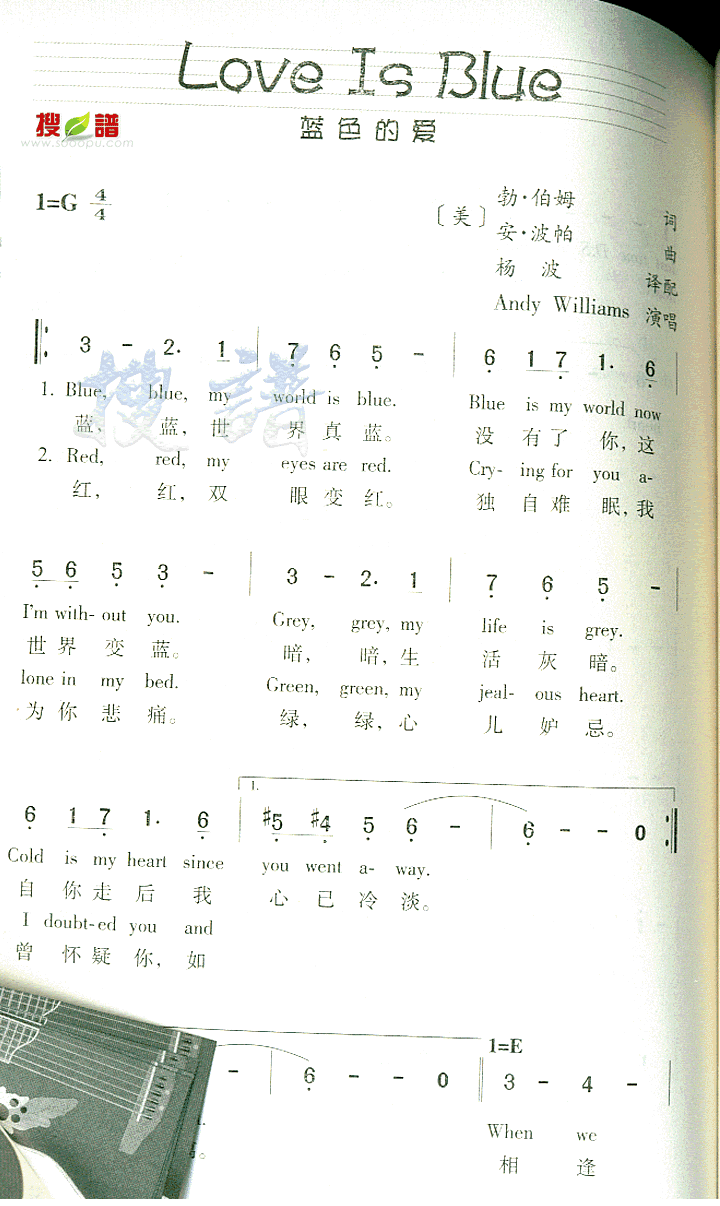 Love Is Blue
蓝色的爱
搜 譜
www.sooopu.com
1=G 4/4
〔美〕
勃·伯姆 词
安·波帕 曲
杨 波 译配
Andy Williams 演唱
3 - 2· 1 7 6 5 - 6 1 7 1· 6
搜 譜
1. Blue, blue, my world is blue. Blue is my world now
蓝, 蓝, 世 界 真 蓝。 没 有 了 你, 这
2. Red, red, my eyes are red. Cry- ing for you a-
红, 红, 双 眼 变 红。 独 自 难 眠, 我
5 6 5 3 - 3 - 2· 1 7 6 5 -
I'm with- out you. Grey, grey, my life is grey.
世 界 变 蓝。 暗, 暗, 生 活 灰 暗。
lone in my bed. Green, green, my jeal- ous heart.
为 你 悲 痛。 绿, 绿, 心 儿 妒 忌。
1.
6 1 7 1· 6 #5 #4 5 6 - 6 - - 0
Cold is my heart since you went a- way.
自 你 走 后 我 心 已 冷 淡。
I doubt-ed you and
曾 怀 疑 你, 如
1=E
- 6 - - 0 3 - 4 -
When we
相 逢